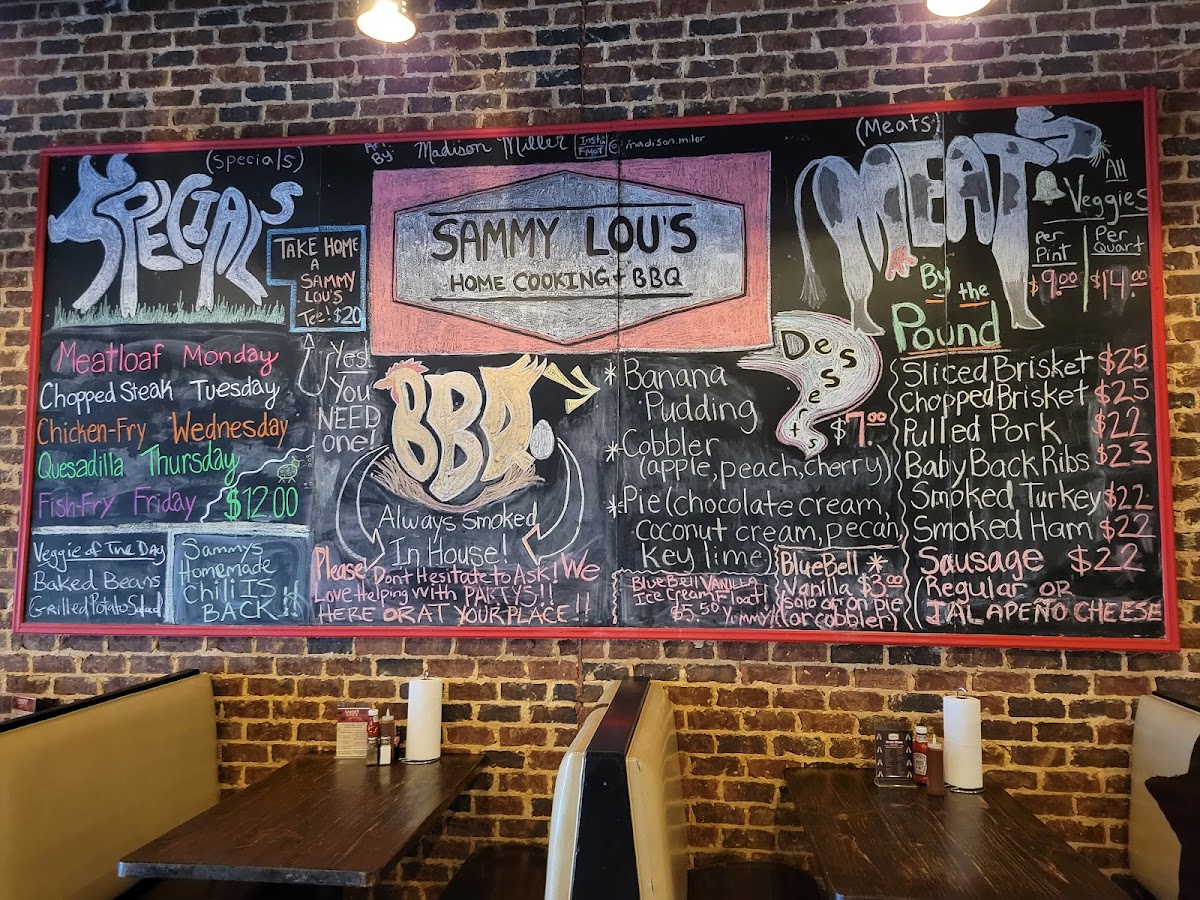 (Specials)
SPECIALS
TAKE HOME
A
SAMMY
LOU'S
Tee! $20
Meatloaf Monday
Chopped Steak Tuesday
Chicken-Fry Wednesday
Quesadilla Thursday
Fish-Fry Friday $12.00
Veggie of The DAY
Baked Beans
Grilled Potato Salad
Sammys
Homemade
Chili IS
BACK!!
Yes!
You
NEED
one!
Art
By: Madison Miller
SAMMY LOU'S
HOME COOKING + BBQ
BBQ
Always Smoked
In House!
Please Dont Hesitate to Ask! We
Love Helping with PARTYS!!
HERE OR AT YOUR PLACE!!
Desserts
$7.00
* Banana
Pudding
* Cobbler
(apple, peach, cherry)
* Pie (chocolate cream,
coconut cream, pecan,
key lime)
Blue Bell VANILLA
Ice Cream Float!
$5.50 Yummy!
BlueBell *
Vanilla $3.00
(solo or on pie
(or cobbler)
(Meats)
MEATS
By the
Pound
All
Veggies
Per
Pint
$9.00
Per
Quart
$14.00
Sliced Brisket $25
Chopped Brisket $25
Pulled Pork $22
Baby Back Ribs $23
Smoked Turkey $22
Smoked Ham $22
Sausage $22
Regular OR
JALAPEÑO CHEESE